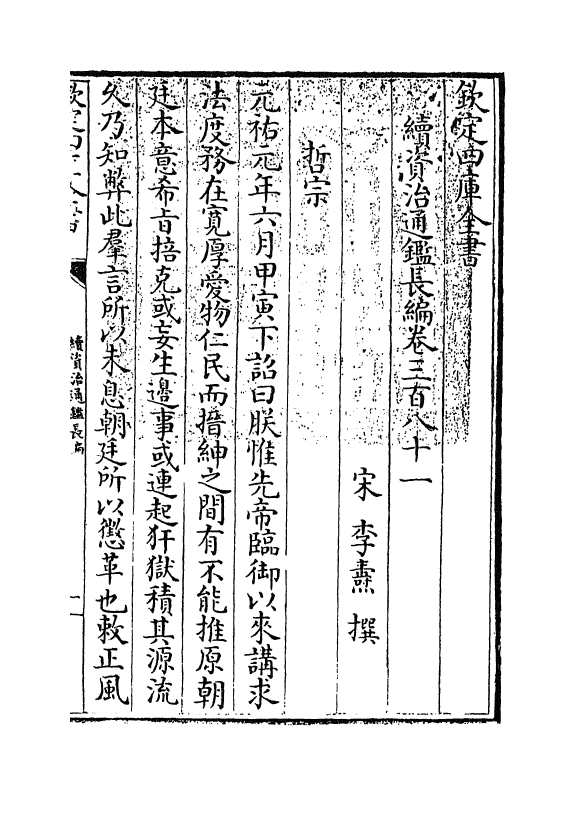 欽定四庫全書
續資治通鑑長編卷三百八十一
宋 李燾 撰
哲宗
元祐元年六月甲寅下詔曰朕惟先帝臨御以來講求
法度務在寛厚愛物仁民而搢紳之間有不能推原朝
廷本意希㫖掊克或妄生邉事或連起犴獄積其源流
久乃知弊此羣言所以未息朝廷所以懲革也敕正風
欽定四庫全書
續資治通鑑長編
一